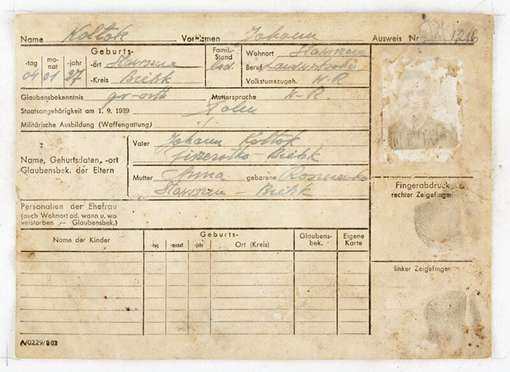 Name Kołtok Vornamen Johann Ausweis Nr.
-tag mo-nat -jahr Geburts- -ort Famil.-Stand Wohnort
04 01 27 led. Beruf
-Kreis Bielsk Volkstumszugeh. W-R.
Glaubensbekenntnis gr-orth Muttersprache W-R.
Staatsangehörigkeit am 1. 9. 1939 Polen
Militärische Ausbildung (Waffengattung) ./.
Name, Geburtsdaten, -ort
Glaubensbek. der Eltern
Vater Johann Kołtok
Bielsk
Mutter Anna geborene
Bielsk
Personalien der Ehefrau
(auch Wohnort ad. wann u. wo
verstorben – Glaubensbek.)
Fingerabdruck
rechter Zeigefinger
Name der Kinder Geburts- -tag -monat -jahr Ort (Kreis) Glaubens-bek. Eigene Karte
linker Zeigefinger